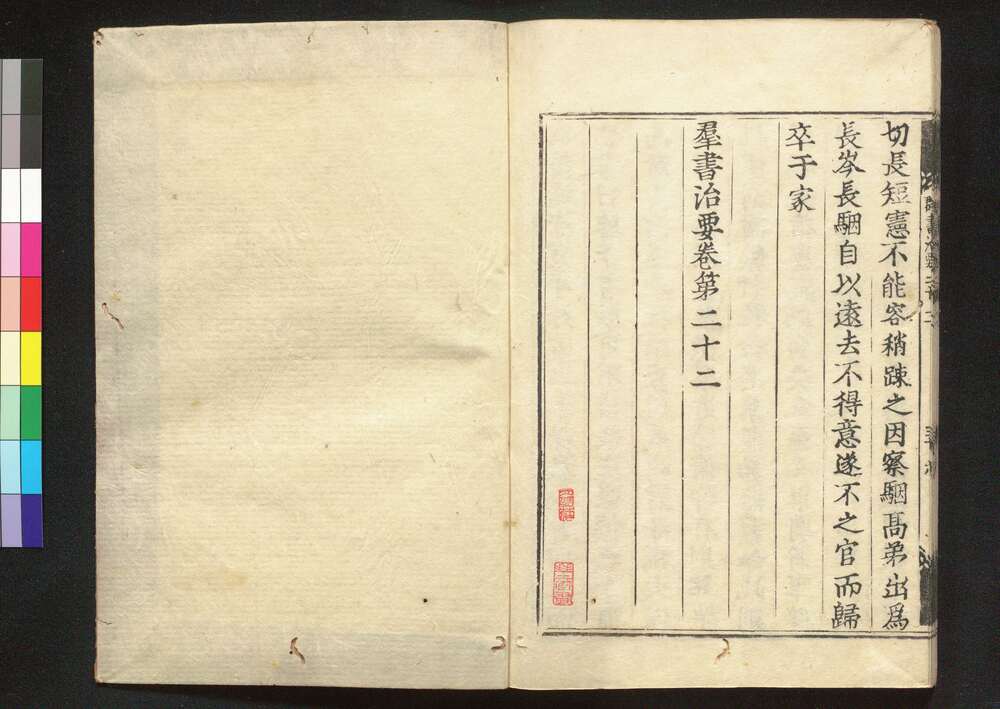 切長短憲不能容稍踈之因察駰髙弟出爲
長岑長駰自以遠去不得意遂不之官而歸
卒于家
羣書治要卷第二十二